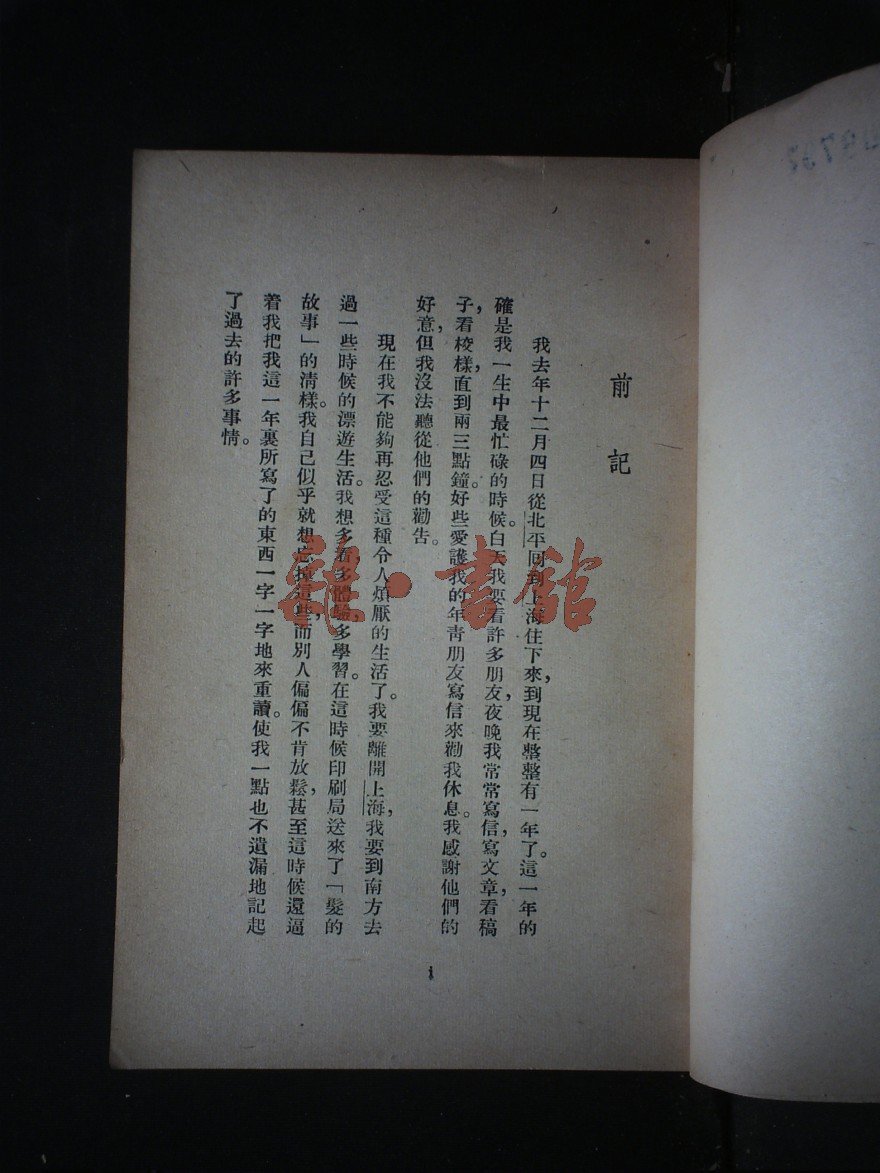 前記
我去年十二月四日從北平回到上海住下來，到現在整整有一年了。這一年的
確是我一生中最忙碌的時候。白天我要看許多朋友，夜晚我常常寫信，寫文章，看稿
子，看校樣，直到兩三點鐘。好些愛護我的年青朋友寫信來勸我休息。我感謝他們的
好意，但我沒法聽從他們的勸告。
現在我不能夠再忍受這種令人煩厭的生活了。我要離開上海，我要到南方去
過一些時候的漂遊生活。我想多看，多體驗，多學習。在這時候印刷局送來了「髮的
故事」的清樣。我自己似乎就想忘掉這些，而別人偏偏不肯放鬆，甚至這時候還逼
着我把我這一年裏所寫了的東西一字一字地來重讀。使我一點也不遺漏地記起
了過去的許多事情。
1
雜·書館